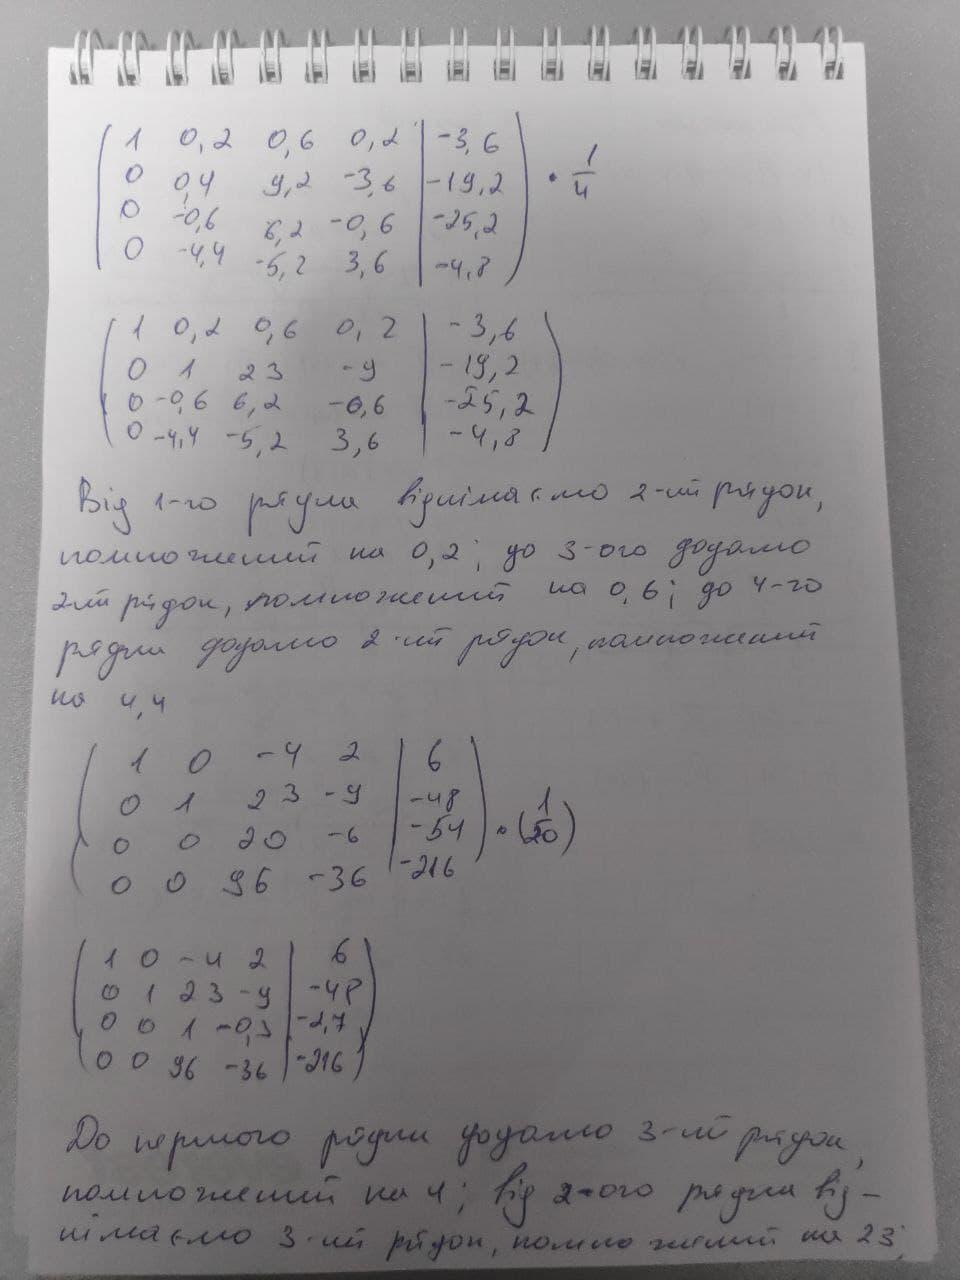 1 0,2 0,6 0,2 | -3,6
0 0,4 9,2 -3,6 | -19,2 · 1/4
0 -0,6 6,2 -0,6 | -25,2
0 -4,4 -5,2 3,6 | -4,8
1 0,2 0,6 0,2 | -3,6
0 1 23 -9 | -19,2
0 -0,6 6,2 -0,6 | -25,2
0 -4,4 -5,2 3,6 | -4,8
Від 1-го рядка віднімаємо 2-ий рядок,
помножений на 0,2; до 3-ого додамо
2-ий рядок, помножений на 0,6; до 4-го
рядка додамо 2-ий рядок, помножений
на 4,4
1 0 -4 2 | 6
0 1 23 -9 | -48
0 0 20 -6 | -54 · (1/20)
0 0 96 -36 | -216
1 0 -4 2 | 6
0 1 23 -9 | -48
0 0 1 -0,3 | -2,7
0 0 96 -36 | -216
До першого рядка додамо 3-ий рядок,
помножений на 4; від 2-ого рядка від-
німаємо 3-ий рядок, помножений на 23;